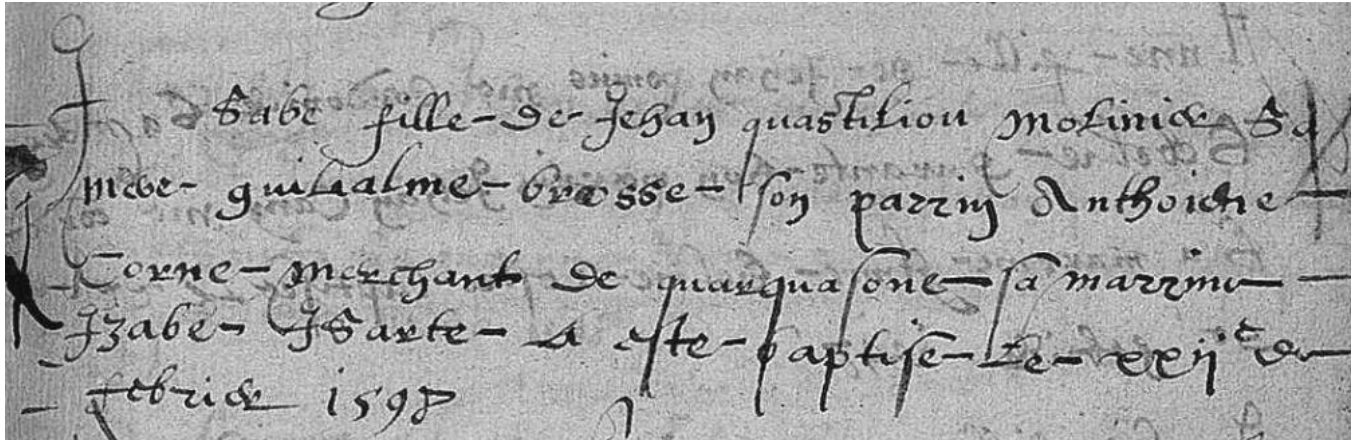 Sabe fille de Jehan quastiliou molinier Sa
mere guilhalme brosse son parrin Anthoiene
Corne merchant de quarquasone sa marrine
Izabe Isarte a este baptise le xxii e de
febrier 1597